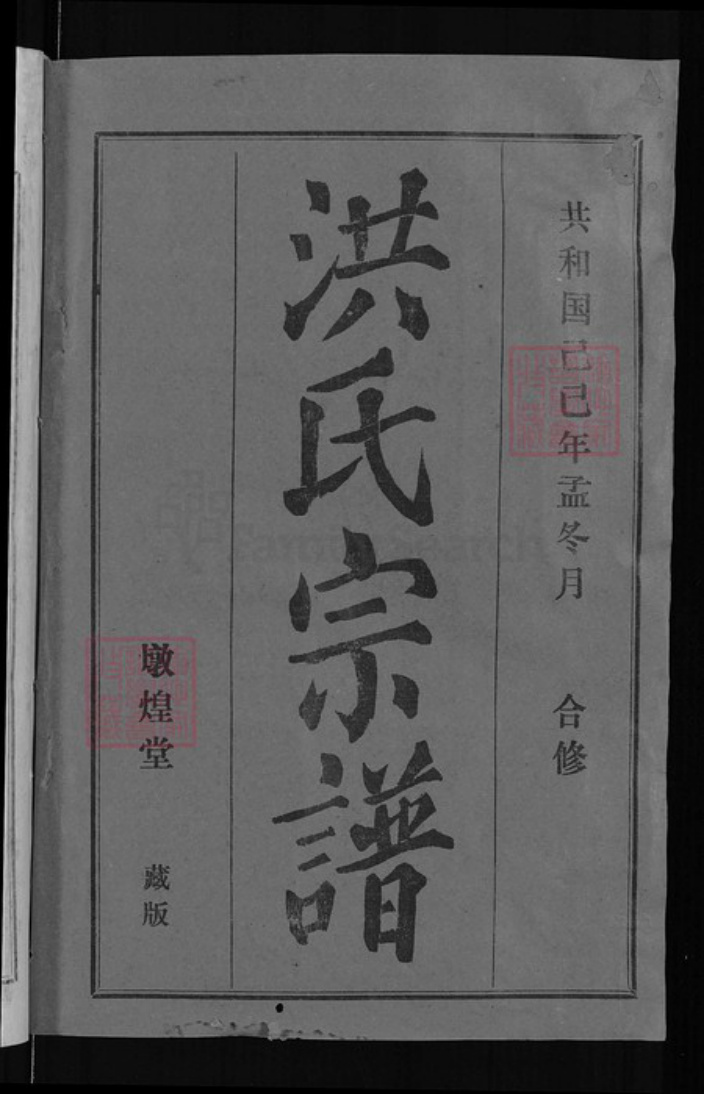 共和国己巳年孟冬月 合修
洪氏宗譜
墩煌堂 藏版
FamilySearch